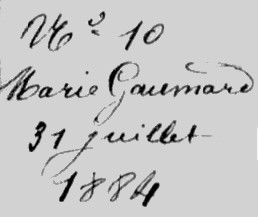 N° 10
Marie Gaumard
31 juillet
1884